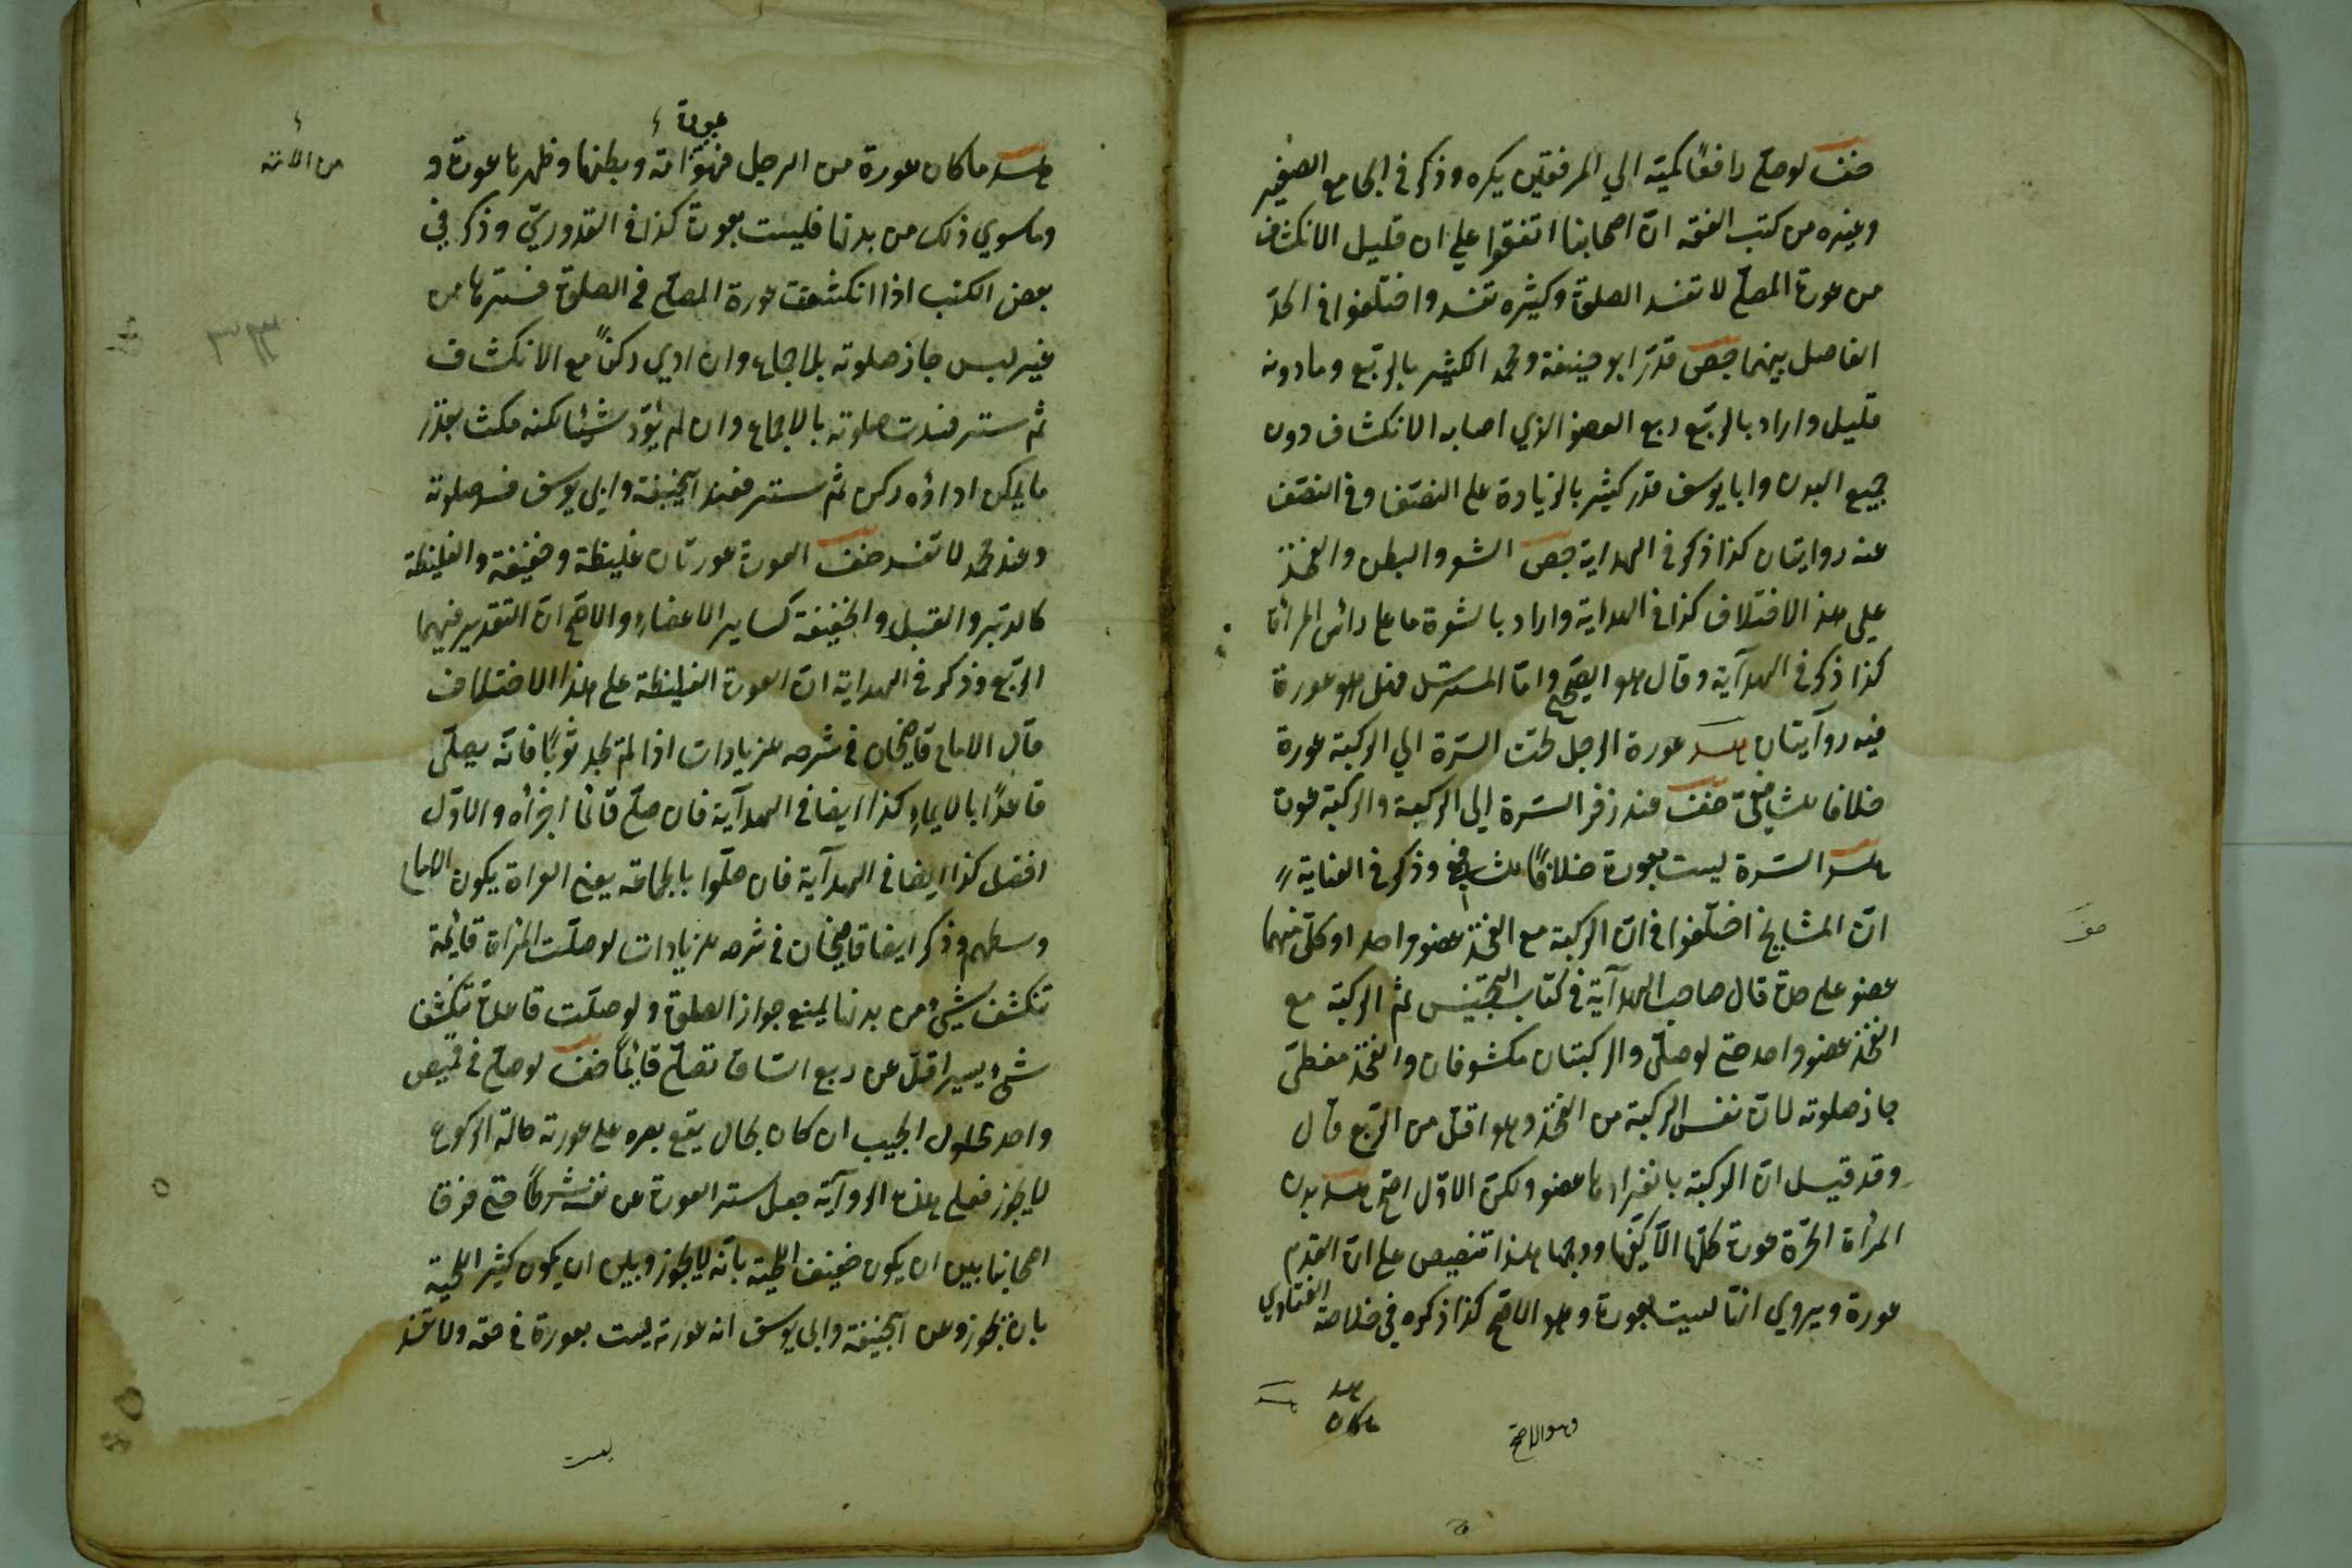 خف لو صلى رافعا كميه الي المرفقين يكره وذكر في الجامع الصغير
وغيره من كتب الفقه ان اصحابنا اتفقوا علي ان قليل الانكشاف
من عورة المصلي لا تفسد الصلوة وكثيره تفسد واختلفوا في الحدّ
الفاصل بينهما جص قدّر ابو حنيفة ومحمد الكثير بالربع وما دونه
قليل واراد بالربع ربع العضو الذي اصابه الانكشاف دون
جميع البدن وابا يوسف قدر كثير بالزيادة على النصف وفي النصف
عنه روايتان كذا ذكر في الهداية جص الشعر والبطن والفخذ
علي هذ الاختلاف كذا في الهداية واراد بالشعرة ما على رائس المرأة
كذا ذكر في الهدآية وقال هو الصحيح وامّا المسترسل فهل هو عورة
فيه روآيتان هد عورة الرجل تحت السّرة الي الركبة عورة
خلافا للشافعي خف عند زفر السّرة إلى الركبة والركبة عورة
هد السّرة ليست بعورة خلافًا للشافعي وذكر في الغناية
انّ المشايخ اختلفوا في انّ الركبة مع الفخذ عضو واحد او كلّ منهما
عضو على حدة قال صاحب الهدآية في كتاب التجنيس ثم الركبة مع
الفخذ عضو واحد حتى لو صلّى والركبتان مكشوفان والفخذ مغطى
جاز صلوته لانّ نفس الركبة من الفخذ وهو اقل من الربع قال
وقد قيل انّ الركبة بانفرادها عضو ولكن الاوّل اصح هد بدن
المرأة الحرّة عورة كلّها الّا كفّيها ووجهها هذا تنصيص على انّ القدم
عورة ويروي انّها ليست بعورة وهو الاصح كذا ذكره في خلاصة الفتاوي
هد
ماكان
وهو الاصح
هد ما كان عورة من الرجل فهو عورة من الأمة وبطنها وظهرها عورة و
وما سوي ذلك من بدنها فليست بعورة كذا في القدوريّ وذكر في
بعض الكتب اذا انكشفت عورة المصلي في الصلوة فسترها من
غير لبس جاز صلوته بلا اجماع وان ادي ركناً مع الانكشاف
ثم ستر فسدت صلوته بالاجماع وان لم يؤدّ شيئا لكنه مكث بقدر
ما يمكن اداؤه ركن ثم ستر فعند ابحنيفة وابي يوسف فسد صلوته
وعند محمد لا تفسد خف العورة عورتان غليظة وخفيفة والغليظة
كالدّبر والقبل والخفيفة كساير الاعضاء والاصح انّ التقدير فيهما
الربع وذكر في الهداية انّ العورة الغليظة على هذا الاختلاف
قال الامام قاضيخان في شرحه للزيادات اذا لم يجد ثوبًا فانّه يصلّى
قاعدًا بالايماء كذا ايضا في الهدآية فان صلّى قائما اجزأه والاوّل
افضل كذا ايضا في الهدآية فان صلّوا بالجماعة يعني العراة يكون الامام
وسطهم وذكر ايضا قاضيخان في شرحه للزيادات لو صلّت المرأة قايمة
تنكشف شيئ من بدنها يمنع جواز الصلوة ولو صلّت قاعدة تنكشف
شئ يسير اقل من ربع السّاق تصلّي قايماً خف لو صلى في قميص
واحد محلول الجيب ان كان بحال يقع بصره على عورته حالة الركوع
لا يجوز فعلى هذه الروآية جعل ستر العورة عن نفسه شرطاً حتى فرقا
اصحابنا بين ان يكون خفيف اللحية بانّه لا يجوز وبين ان يكون كثير اللحية
بان يجوز وعن ابحنيفة وابي يوسف انه عورته ليست بعورة في حقه ولا تفسد
من الأمة
ليست